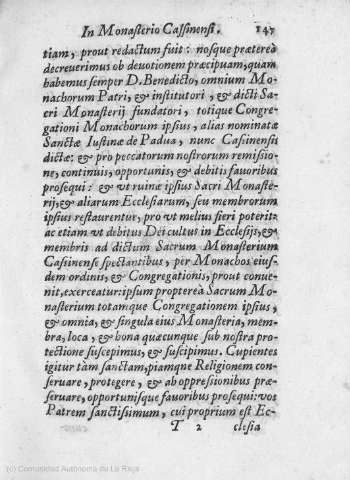 In Monasterio Cassinensi. 147
tiam, prout redactum fuit : nosque prætereà
decreverimus ob devotionem præcipuam, quam
habemus semper D. Benedicto, omnium Mo-
nachorum Patri, & institutori, & dicti Sa-
cri Monasterij fundatori, totique Congre-
gationi Monachorum ipsius, alias nominatæ
Sanctæ Iustinæ de Padua, nunc Casinensis
dictæ: & pro peccatorum nostrorum remissio-
ne, continuis, opportunis, & debitis favoribus
prosequi: & ut ruinæ ipsius Sacri Monaste-
rij, & aliarum Ecclesiarum, seu membrorum
ipsius restaurentur, pro ut melius fieri poterit:
ac etiam ut debitus Dei cultus in Ecclesijs, &
membris ad dictum Sacrum Monasterium
Cassinense spectantibus, per Monachos eius-
dem ordinis, & Congregationis, prout conue-
nit, exerceatur: ipsum propterea Sacrum Mo-
nasterium totamque Congregationem ipsius,
& omnia, & singula eius Monasteria, mem-
bra, loca, & bona quæcunque sub nostra pro-
tectione suscepimus, & suscipimus. Cupientes
igitur tàm sanctam, piamque Religionem con-
seruare, protegere, & ab oppressionibus præ-
seruare, opportunisque fauoribus prosequi: vos
Patrem sanctissimum, cui proprium est Ec-
T 2 clesia
(c) Comunidad Autónoma de La Rioja